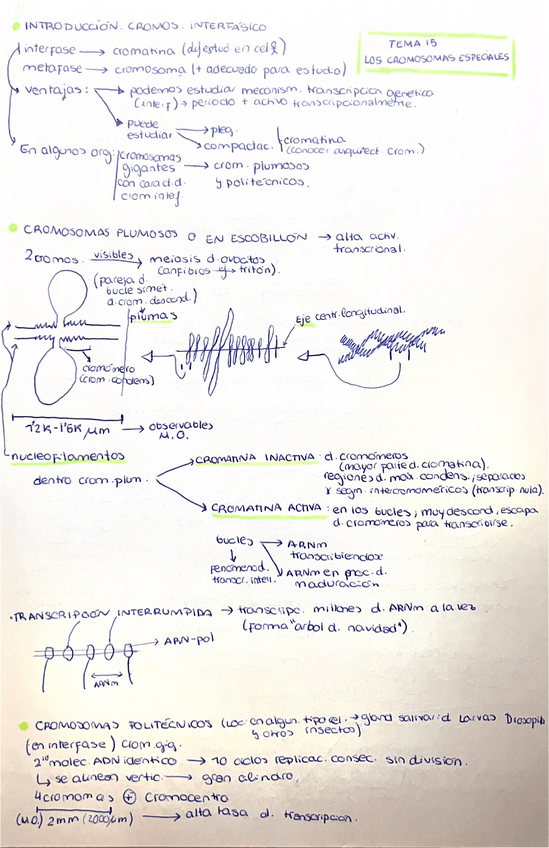 INTRODUCCIÓN. CROMOS. INTERFÁSICO
TEMA 15
LOS CROMOSOMAS ESPECIALES
interfase → cromatina
metafase → cromosoma (+ adecuado para estudio)
ventajas: → podemos estudiar mecanism. transcripción genética
(interf) → periodo + activo transcripcionalmente.
puede
estudiar → pleg.
compactac. cromatina
(conocer arquitect. crom.)
En algunos org: cromosomas
gigantes → crom. plumosos
con caract. d. y politécnicos.
crom intef.
CROMOSOMAS PLUMOSOS O EN ESCOBILLÓN → alta activ.
transcrional.
2 cromos. visibles → meiosis d. ovocitos
(anfibios → tritón).
(pareja d.
bucle simet.
d. crom. descond.)
plumas
Eje centr. longitudinal.
cromómero
(crom. condens)
1'2K-1'6K µm → observables
M.O.
nucleofilamentos
dentro crom. plum.
CROMATINA INACTIVA: d. cromómeros
(mayor parte d. cromatina).
regiones d. max. condens., separados
x segm. intercromoméricos (transcrip nula).
CROMATINA ACTIVA: en los bucles, muy descond, escapa
d. cromómeros para transcribirse.
bucles → ARNm
transcribiendose
fenomenod. ARNm en proc. d.
transcr. inteli. maduración
TRANSCRIPCIÓN INTERRUMPIDA → transcripc. millones d. ARNm a la vez.
(forma "arbol d. navidad").
ARN-pol
ARNm
CROMOSOMAS POLITÉCNICOS (Loc. en algun. tipo cel. → gland salivar. d larvas Drosophi
y otros insectos)
(en interfase) crom. gig.
2¹⁰ molec. ADN identico → 10 ciclos replicac. consec. sin division.
↳ se alinean vertic. → gran cilindro.
4 cromom as + cromocentro
(M.O.) 2mm (2000 µm) → alta tasa d. transcripcion.